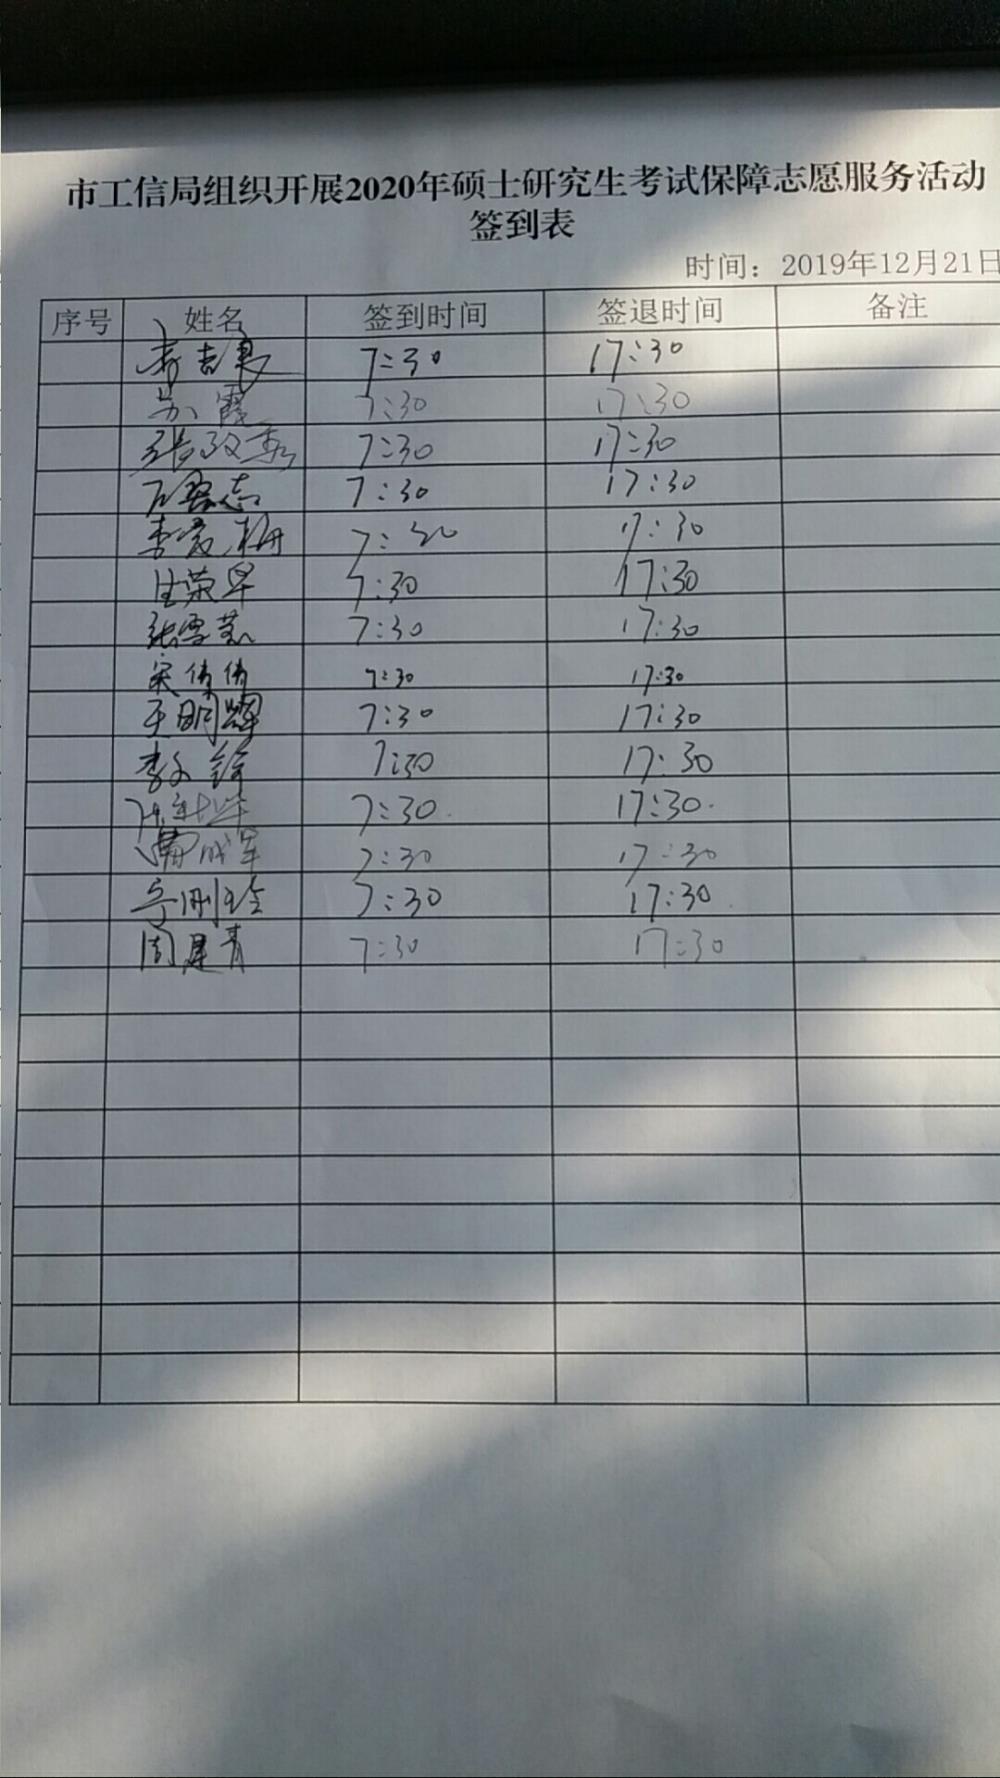 市工信局组织开展2020年硕士研究生考试保障志愿服务活动
签到表
时间：2019年12月21日
序号 姓名 签到时间 签退时间 备注
7:30 17:30
苏霞 7:30 17:30
张政秀 7:30 17:30
7:30 17:30
李爱梅 7:30 17:30
甘荣早 7:30 17:30
张雪莲 7:30 17:30
宋倩倩 7:30 17:30
于明辉 7:30 17:30
李文锋 7:30 17:30
7:30 17:30
7:30 17:30
7:30 17:30
周建青 7:30 17:30